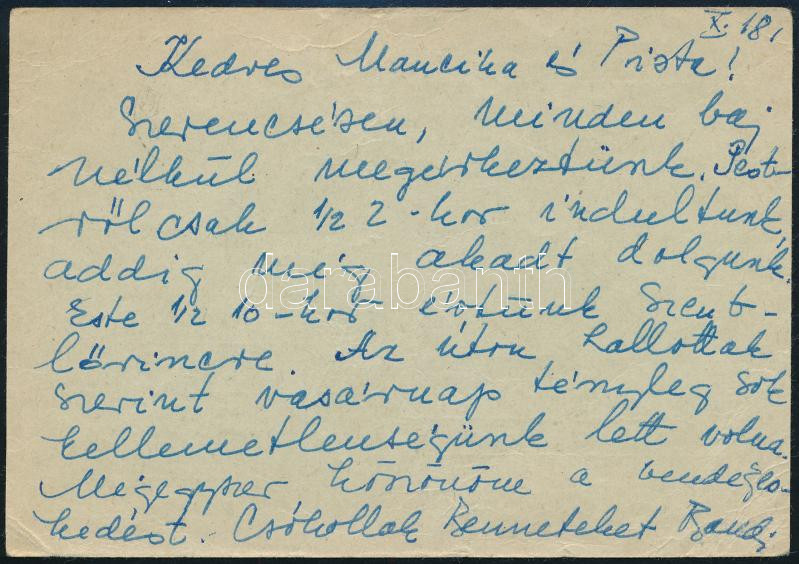 X. 18.
Kedves Mancika és Pista!
Szerencsésen, minden baj
nélkül megérkeztünk. Pest-
ről csak 1/2 2-kor indultunk,
addig még akadt dolgunk.
Este 1/2 10-kor értünk Szent-
lőrincre. Az úton hallottak
szerint vasárnap tényleg sok
kellemetlenségünk lett volna.
Mégegyszer köszönöm a vendéglá-
tást. Csókollak Benneteket Bandi
darabanth